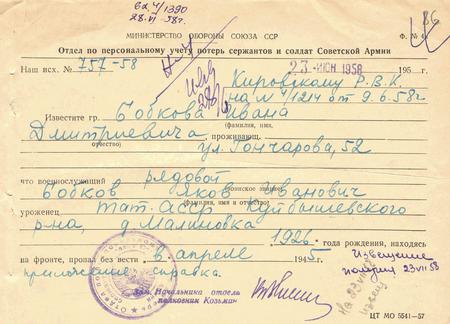 вх 4/1390
28.VI-58г.
86
МИНИСТЕРСТВО ОБОРОНЫ СОЮЗА ССР
Ф. №
Отдел по персональному учету потерь сержантов и солдат Советской Армии
Наш исх. № 757-58
23 ИЮН 1958
195 г.
Кировскому Р.В.К.
на № 4/1214 от 9.6.58г
Известите гр. Бобкова Ивана
(фамилия, имя,
Дмитриевича, проживающ.
отчество)
ул. Гончарова, 52
что военнослужащий рядовой
(воинское звание,
Бобков Яков Иванович
фамилия, имя и отчество)
уроженец Тат. АССР Куйбышевского
р-на, д Малиновка
1926 года рождения, находясь
на фронте, пропал без вести 6 апреле 1945 г.
приложение справка.
Извещение
получил 23 VII 58
Зам. Начальника отдела
полковник Козьмин
ЦТ МО 5541—57